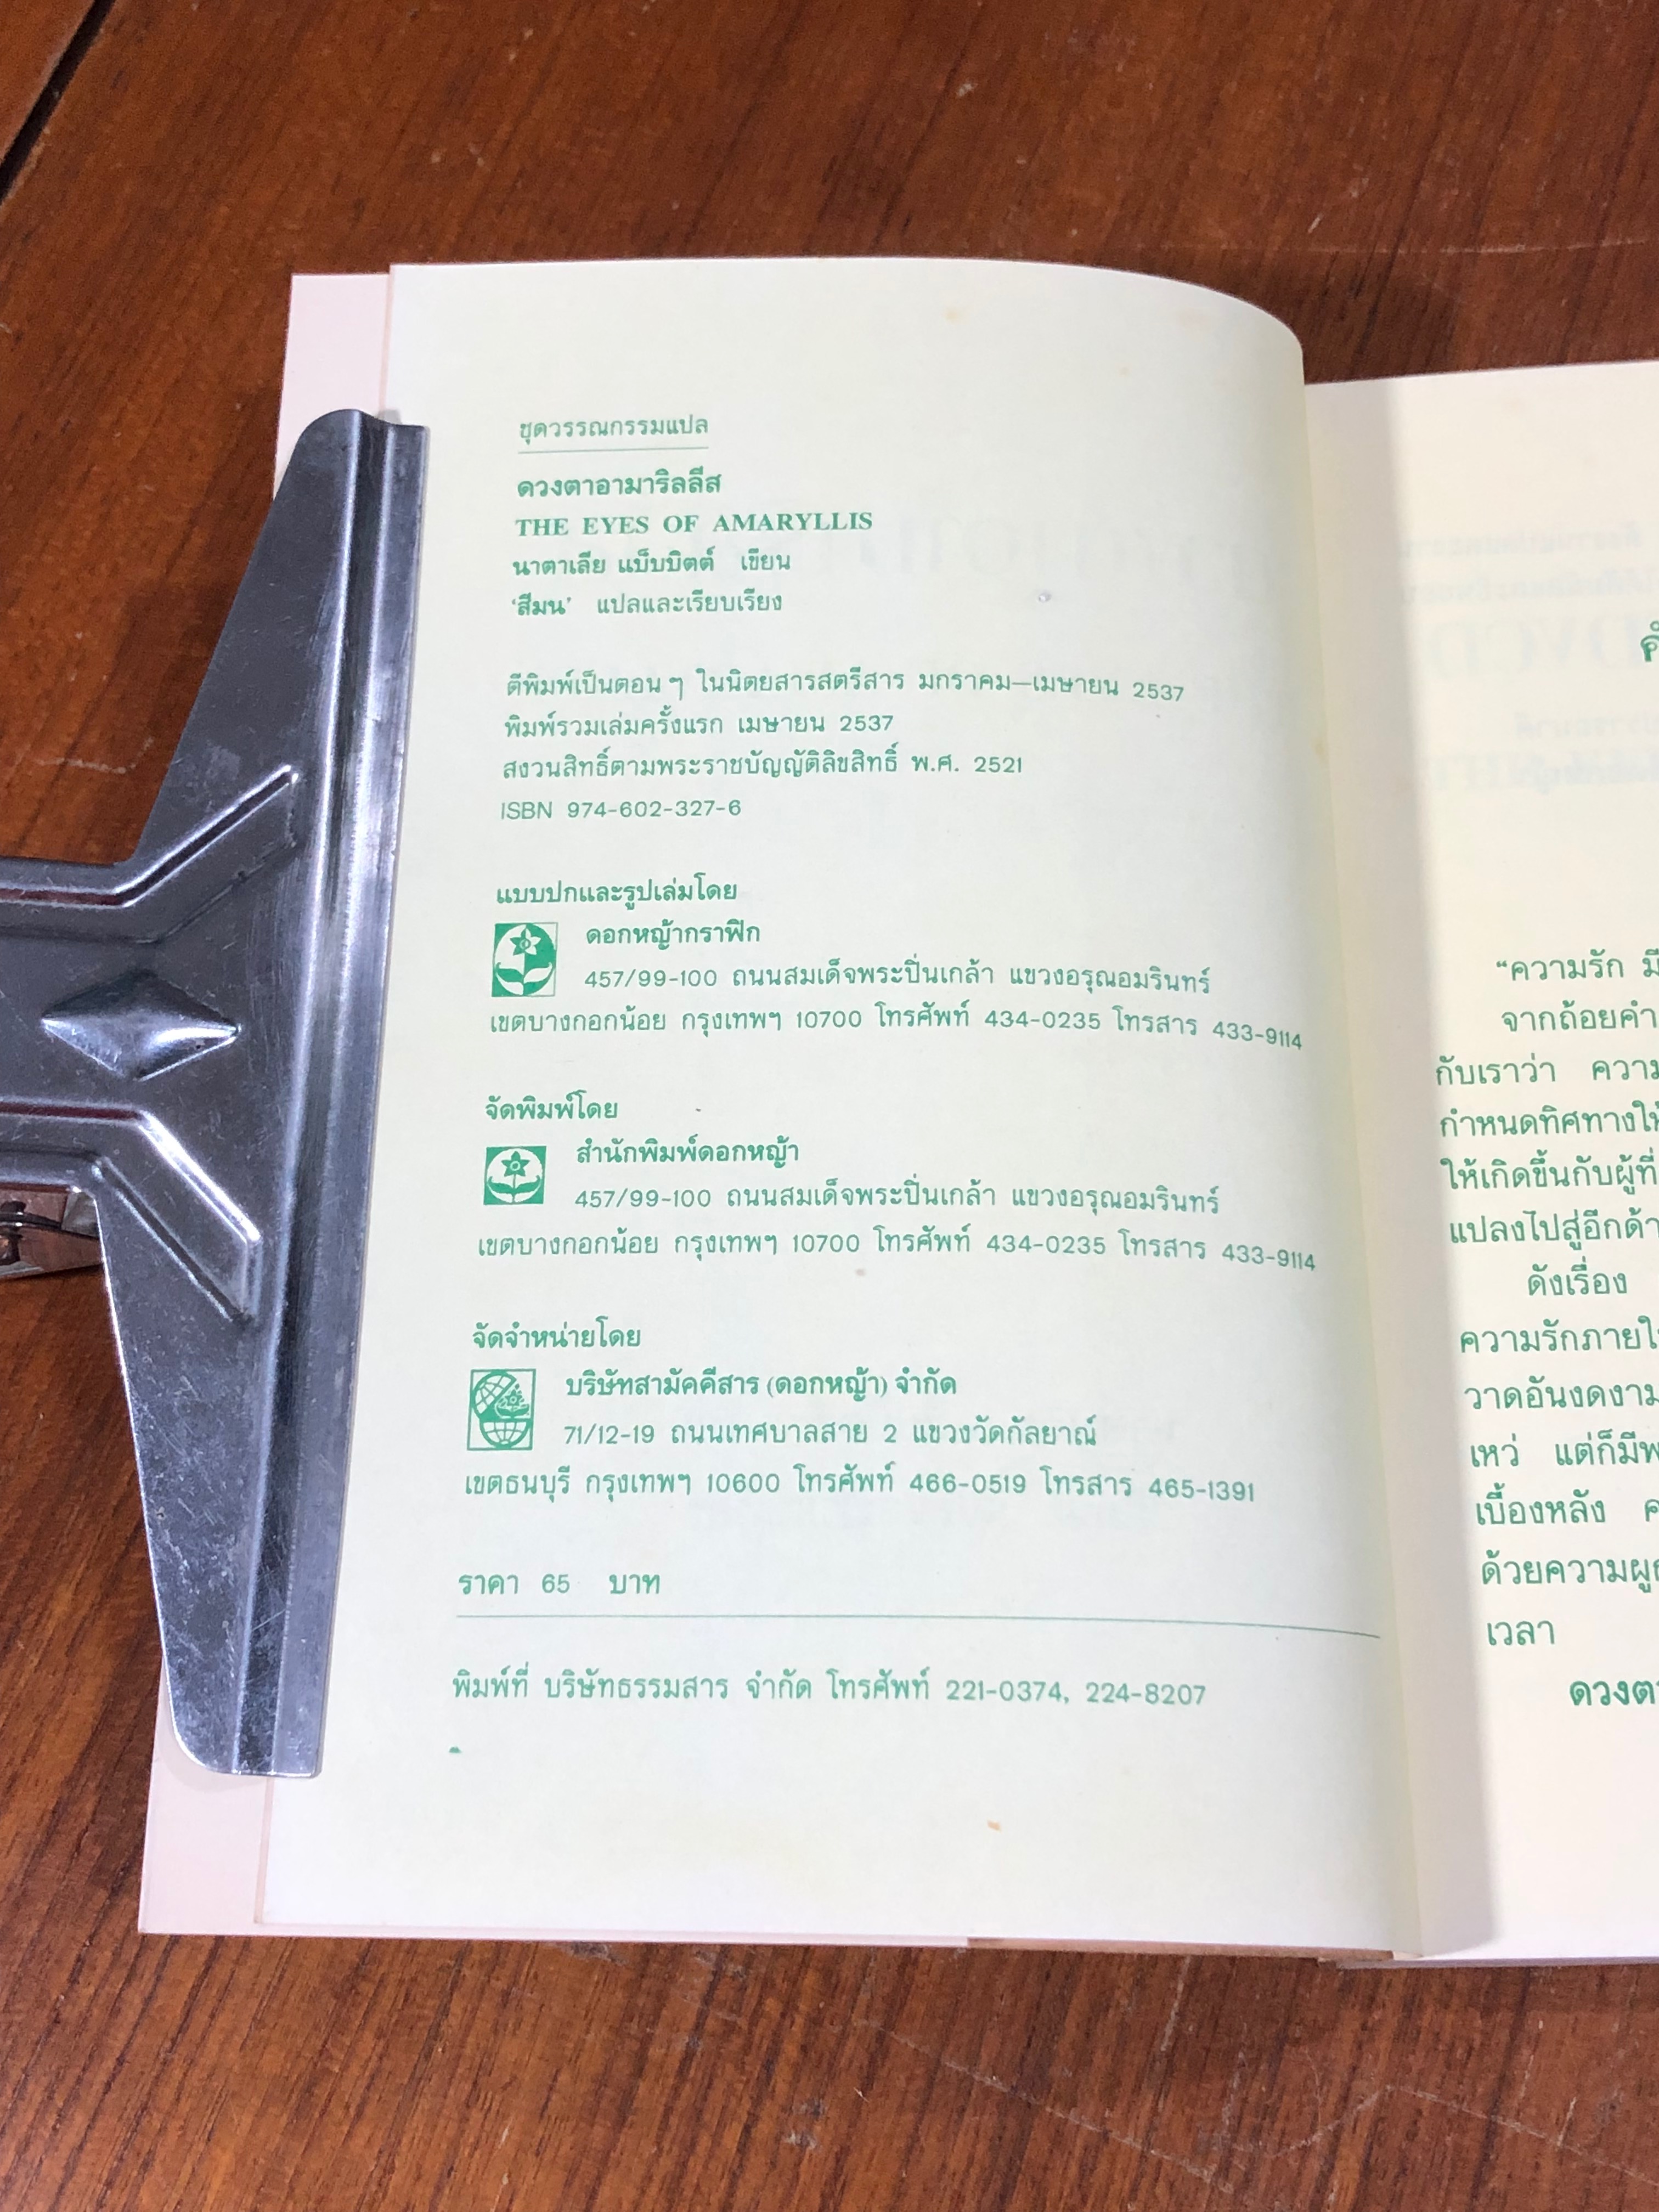 ชุดวรรณกรรมแปล
ดวงตาอามาริลลีส
THE EYES OF AMARYLLIS
นาตาเลีย แบ็บบิตต์ เขียน
‘สีมน’ แปลและเรียบเรียง
ตีพิมพ์เป็นตอน ๆ ในนิตยสารสตรีสาร มกราคม—เมษายน 2537
พิมพ์รวมเล่มครั้งแรก เมษายน 2537
สงวนสิทธิ์ตามพระราชบัญญัติลิขสิทธิ์ พ.ศ. 2521
ISBN 974-602-327-6
แบบปกและรูปเล่มโดย
ดอกหญ้ากราฟิก
457/99-100 ถนนสมเด็จพระปิ่นเกล้า แขวงอรุณอมรินทร์
เขตบางกอกน้อย กรุงเทพฯ 10700 โทรศัพท์ 434-0235 โทรสาร 433-9114
จัดพิมพ์โดย
สำนักพิมพ์ดอกหญ้า
457/99-100 ถนนสมเด็จพระปิ่นเกล้า แขวงอรุณอมรินทร์
เขตบางกอกน้อย กรุงเทพฯ 10700 โทรศัพท์ 434-0235 โทรสาร 433-9114
จัดจำหน่ายโดย
บริษัทสามัคคีสาร (ดอกหญ้า) จำกัด
71/12-19 ถนนเทศบาลสาย 2 แขวงวัดกัลยาณ์
เขตธนบุรี กรุงเทพฯ 10600 โทรศัพท์ 466-0519 โทรสาร 465-1391
ราคา 65 บาท
พิมพ์ที่ บริษัทธรรมสาร จำกัด โทรศัพท์ 221-0374, 224-8207
“ความรัก มี
จากถ้อยคำ
กับเราว่า ความ
กำหนดทิศทางให้
ให้เกิดขึ้นกับผู้ที่
แปลงไปสู่อีกด้า
ดังเรื่อง
ความรักภายใ
วาดอันงดงาม
เหว่ แต่ก็มีพ
เบื้องหลัง ค
ด้วยความผู
เวลา
ดวงตา